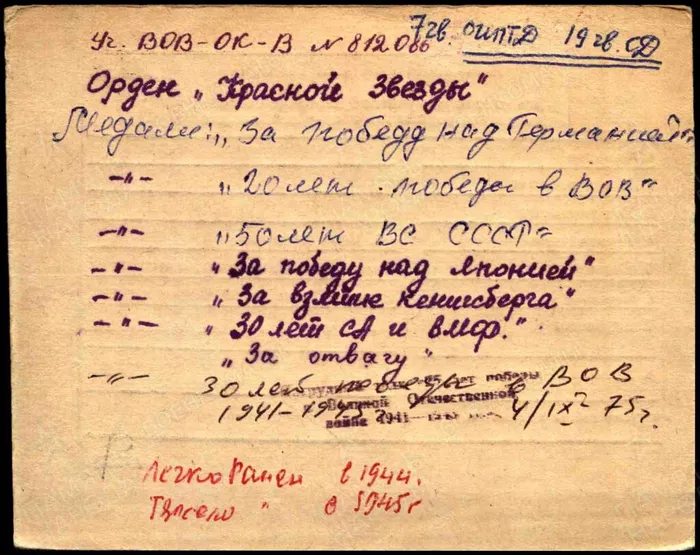 7 гв. ОИПТД 19 гв. СД
Уч. ВОВ-ОК-В № 812086
Орден „Красной Звезды"
Медали: „За победу над Германией"
-"- „20 лет победы в ВОВ"
-"- „50 лет ВС СССР"
-"- „За победу над Японией"
-"- „За взятие Кенисберга"
-"- „30 лет СА и ВМФ."
„За отвагу"
-"- 30 лет победы в ВОВ
лет победы
1941-1945 4/IX 75 г.
Великой Отечественной
войне 1941
Легко Ранен в 1944г.
Тяжело " в 1945г